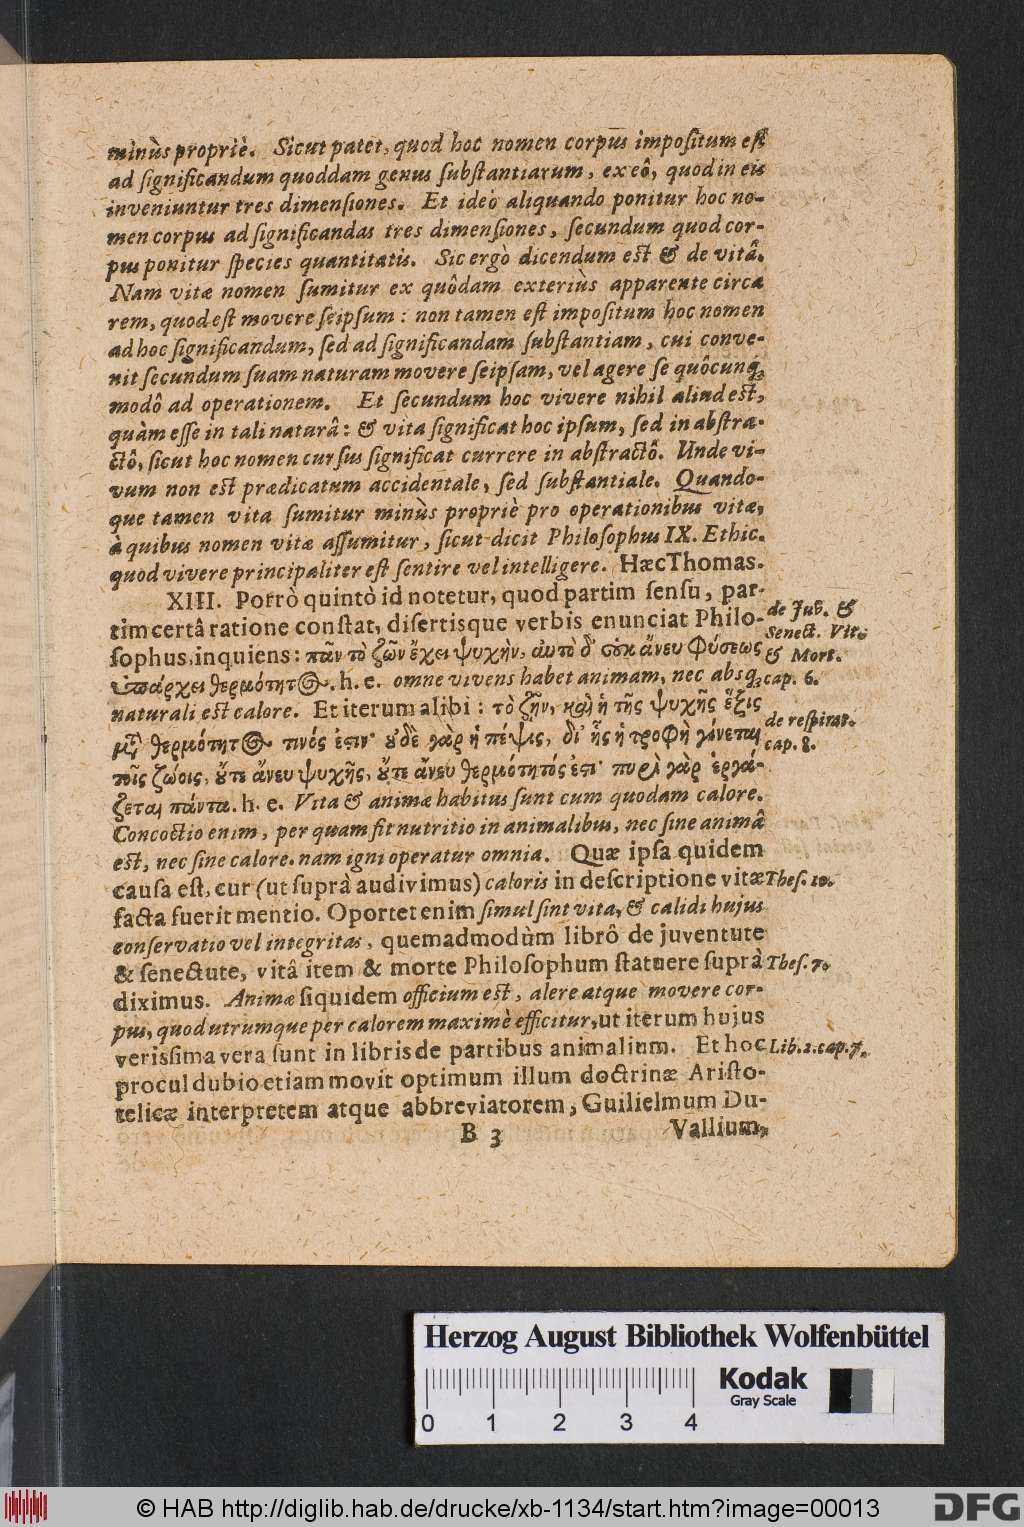 minùs propriè. Sicut patet, quod hoc nomen corpus impositum est
ad significandum quoddam genus substantiarum, ex eô, quod in eis
inveniuntur tres dimensiones. Et ideò aliquando ponitur hoc no-
men corpus ad significandas tres dimensiones, secundum quod cor-
pus ponitur species quantitatis. Sic ergò dicendum est & de vitâ.
Nam vitæ nomen sumitur ex quôdam exteriùs apparente circa
rem, quod est movere seipsum: non tamen est impositum hoc nomen
ad hoc significandum, sed ad significandam substantiam, cui conve-
nit secundum suam naturam movere seipsam, vel agere se quôcunq;
modô ad operationem. Et secundum hoc vivere nihil aliud est,
quàm esse in tali naturâ: & vita significat hoc ipsum, sed in abstra-
ctô, sicut hoc nomen cursus significat currere in abstractô. Unde vi-
vum non est prædicatum accidentale, sed substantiale. Quando-
que tamen vita sumitur minùs propriè pro operationibus vitæ,
à quibus nomen vitæ assumitur, sicut dicit Philosophus IX. Ethic.
quod vivere principaliter est sentire vel intelligere. Hæc Thomas.
XIII. Porrò quintò id notetur, quod partim sensu, par-
tim certâ ratione constat, disertisque verbis enunciat Philo-
sophus, inquiens: πᾶν τὸ ζῶν ἔχει ψυχὴν, αυτὸ δ' οὐκ ἄνευ Φύσεως
ὑπάρχει θερμότητ@. h. e. omne vivens habet animam, nec absq;
naturali est calore. Et iterum alibi: τὸ ζῆν, καὶ ἡ τῆς ψυχῆς ἕξις
μτ̃ θερμότητ@ τινός ἐστιν· ȣδὲ γὰρ ἡ πέψις, δι' ἧς ἡ τροφὴ γίνεται
τοῖς ζώοις, ȣ̓́τε ἄνευ ψυχῆς, ȣ̓́τε ἄνευ θερμότητός ἐστι· πυρὶ γὰρ ἐργά-
ζεται πάντα. h. e. Vita & animæ habitus sunt cum quodam calore.
Concoctio enim, per quam fit nutritio in animalibus, nec sine animâ
est, nec sine calore. nam igni operatur omnia. Quæ ipsa quidem
causa est, cur (ut suprà audivimus) caloris in descriptione vitæ
facta fuerit mentio. Oportet enim simul sint vita, & calidi hujus
conservatio vel integritas, quemadmodùm librô de juventute
& senectute, vitâ item & morte Philosophum statuere suprà
diximus. Animæ siquidem officium est, alere atque movere cor-
pus, quod utrumque per calorem maximè efficitur, ut iterum hujus
verissima vera sunt in libris de partibus animalium. Et hoc
procul dubio etiam movit optimum illum doctrinæ Aristo-
telicæ interpretem atque abbreviatorem, Guilielmum Du-
B 3 Vallium,
de Juv. &
Senect. Vit.
& Mort.
cap. 6.
de respirat.
cap. 8.
Thes. 10.
Thes. 7.
Lib. 2. cap. 7.
Herzog August Bibliothek Wolfenbüttel
0 1 2 3 4
Kodak
Gray Scale
© HAB http://diglib.hab.de/drucke/xb-1134/start.htm?image=00013
DFG